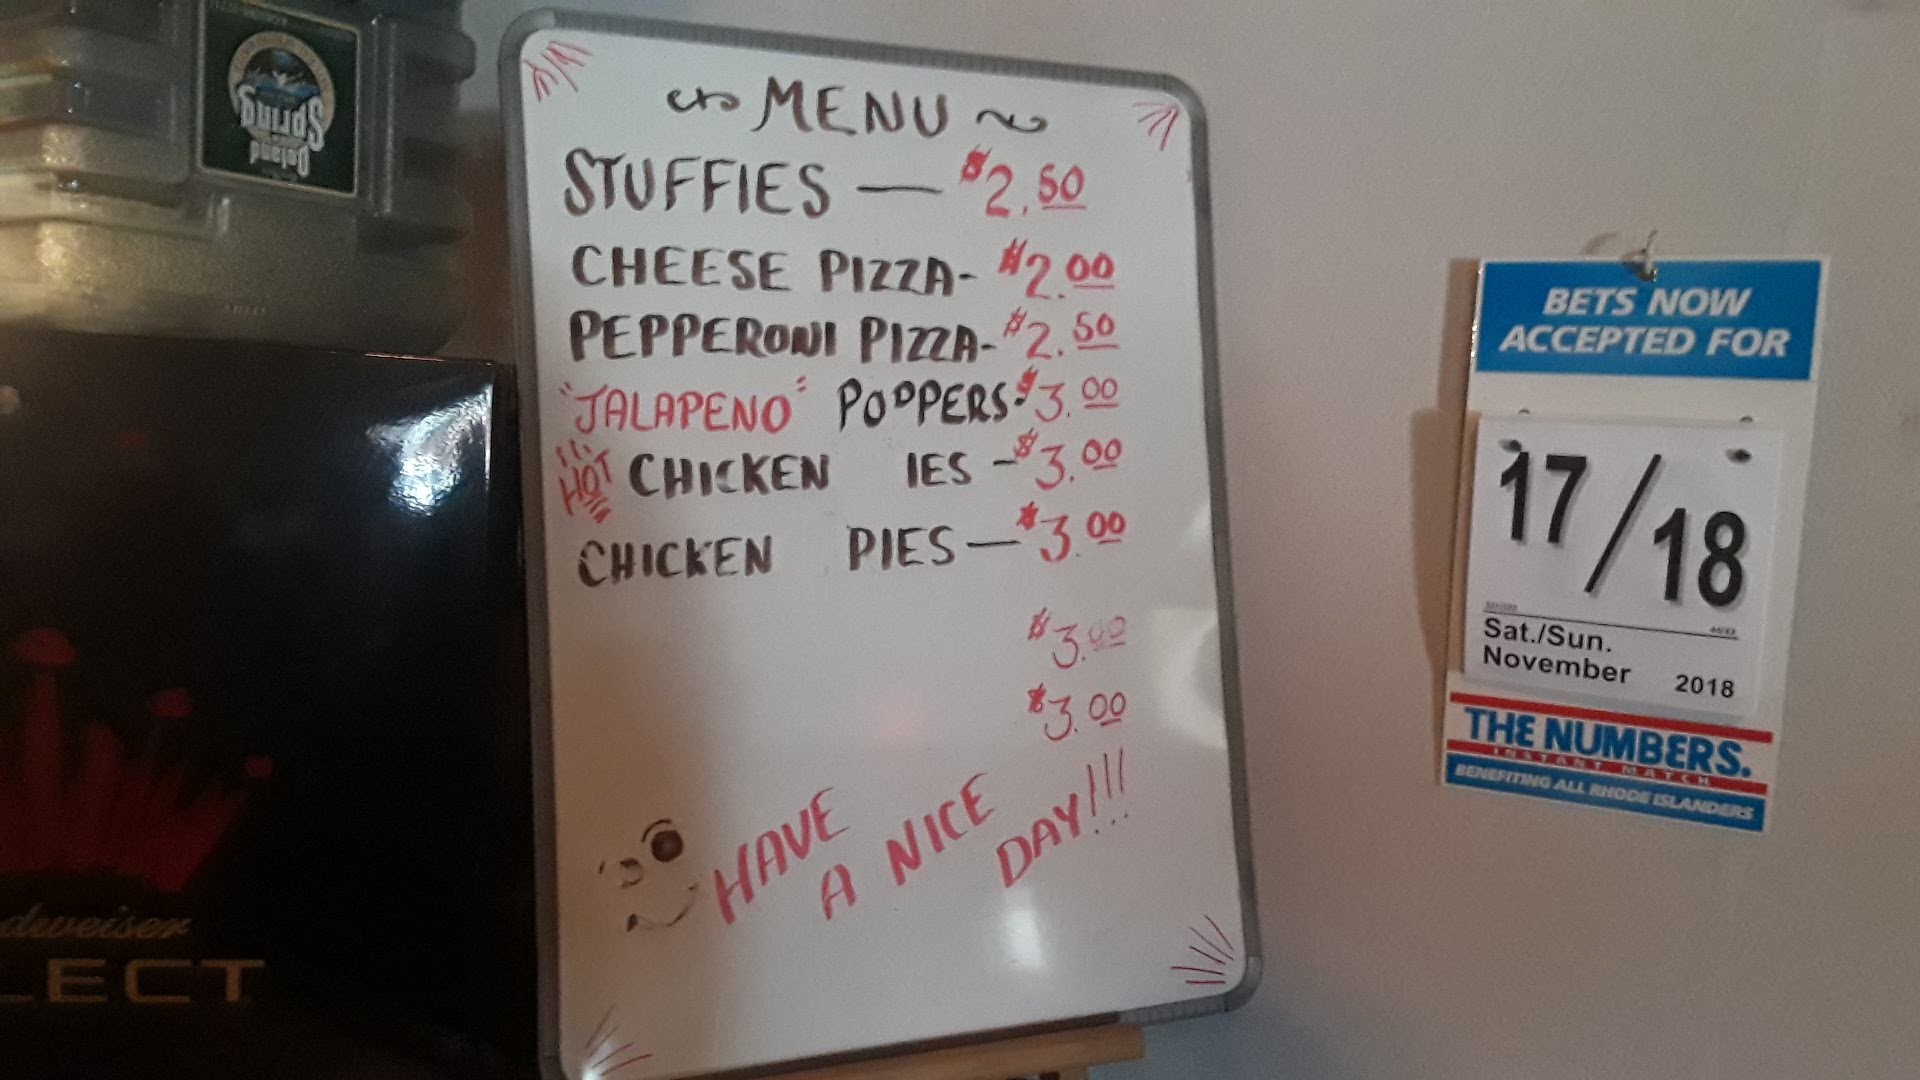 MENU
STUFFIES — $2.50
CHEESE PIZZA- $2.00
PEPPERONI PIZZA- $2.50
"JALAPENO" POPPERS- $3.00
HOT CHICKEN IES - $3.00
CHICKEN PIES — $3.00
$3.00
$3.00
HAVE
A NICE
DAY!!!
BETS NOW
ACCEPTED FOR
17/18
Sat./Sun.
November 2018
THE NUMBERS.
INSTANT MATCH
BENEFITING ALL RHODE ISLANDERS
Poland
Spring
dweiser
LECT